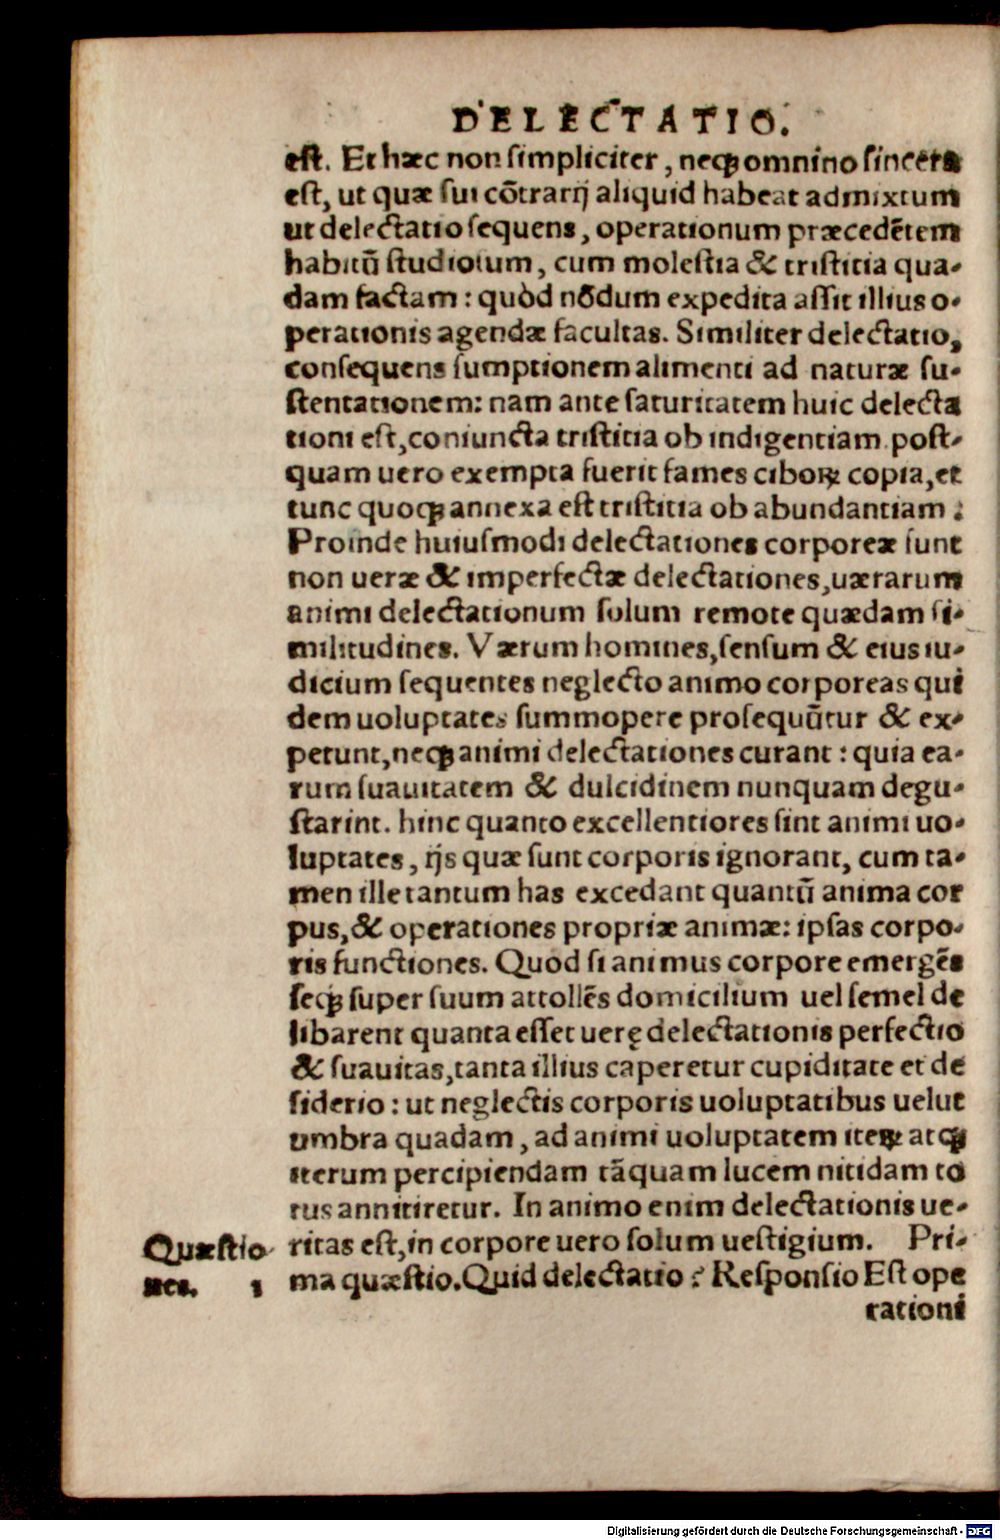 DELECTATIO.
est. Et hæc non simpliciter, neqꝫ omnino sincera
est, ut quæ sui cõtrarij aliquid habeat admixtum
ut delectatio sequens, operationum præcedẽtem
habitũ studiosum, cum molestia & tristitia qua-
dam factam: quòd nõdum expedita assit illius o-
perationis agendæ facultas. Similiter delectatio,
consequens sumptionem alimenti ad naturæ su-
stentationem: nam ante saturitatem huic delecta
tioni est, coniuncta tristitia ob indigentiam post-
quam uero exempta fuerit fames ciboꝝ copia, et
tunc quoqꝫ annexa est tristitia ob abundantiam.
Proinde huiusmodi delectationes corporeæ sunt
non ueræ & imperfectæ delectationes, uærarum
animi delectationum solum remote quædam si-
militudines. Værum homines, sensum & eius iu-
dicium sequentes neglecto animo corporeas qui
dem uoluptates summopere prosequũtur & ex-
petunt, neqꝫ animi delectationes curant: quia ea-
rum suauitatem & dulcidinem nunquam degu-
starint. hinc quanto excellentiores sint animi uo-
luptates, ijs quæ sunt corporis ignorant, cum ta-
men ille tantum has excedant quantũ anima cor
pus, & operationes propriæ animæ: ipsas corpo-
ris functiones. Quod si animus corpore emergẽs
seqꝫ super suum attollẽs domicilium uel semel de
libarent quanta esset uerę delectationis perfectio
& suauitas, tanta illius caperetur cupiditate et de
siderio: ut neglectis corporis uoluptatibus uelut
umbra quadam, ad animi uoluptatem iteꝝ atqꝫ
iterum percipiendam tãquam lucem nitidam to
tus annitiretur. In animo enim delectationis ue-
ritas est, in corpore uero solum uestigium. Pri-
Quæstio
ma quæstio. Quid delectatio? Responsio Est ope
nes. 1
rationi
Digitalisierung gefördert durch die Deutsche Forschungsgemeinschaft - DFG